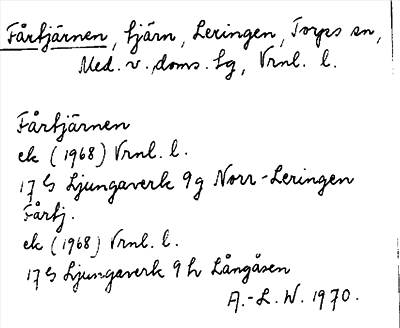 Fårtjärnen, tjärn, Leringen, Torps sn,
Med. v. doms. tg, Vrnl. l.
Fårtjärnen
ek (1968) Vrnl. l.
17 G Ljungaverk 9 g Norr-Leringen
Fårtj.
ek (1968) Vrnl. l.
17 G Ljungaverk 9 h Långåsen
A.-L. W. 1970.